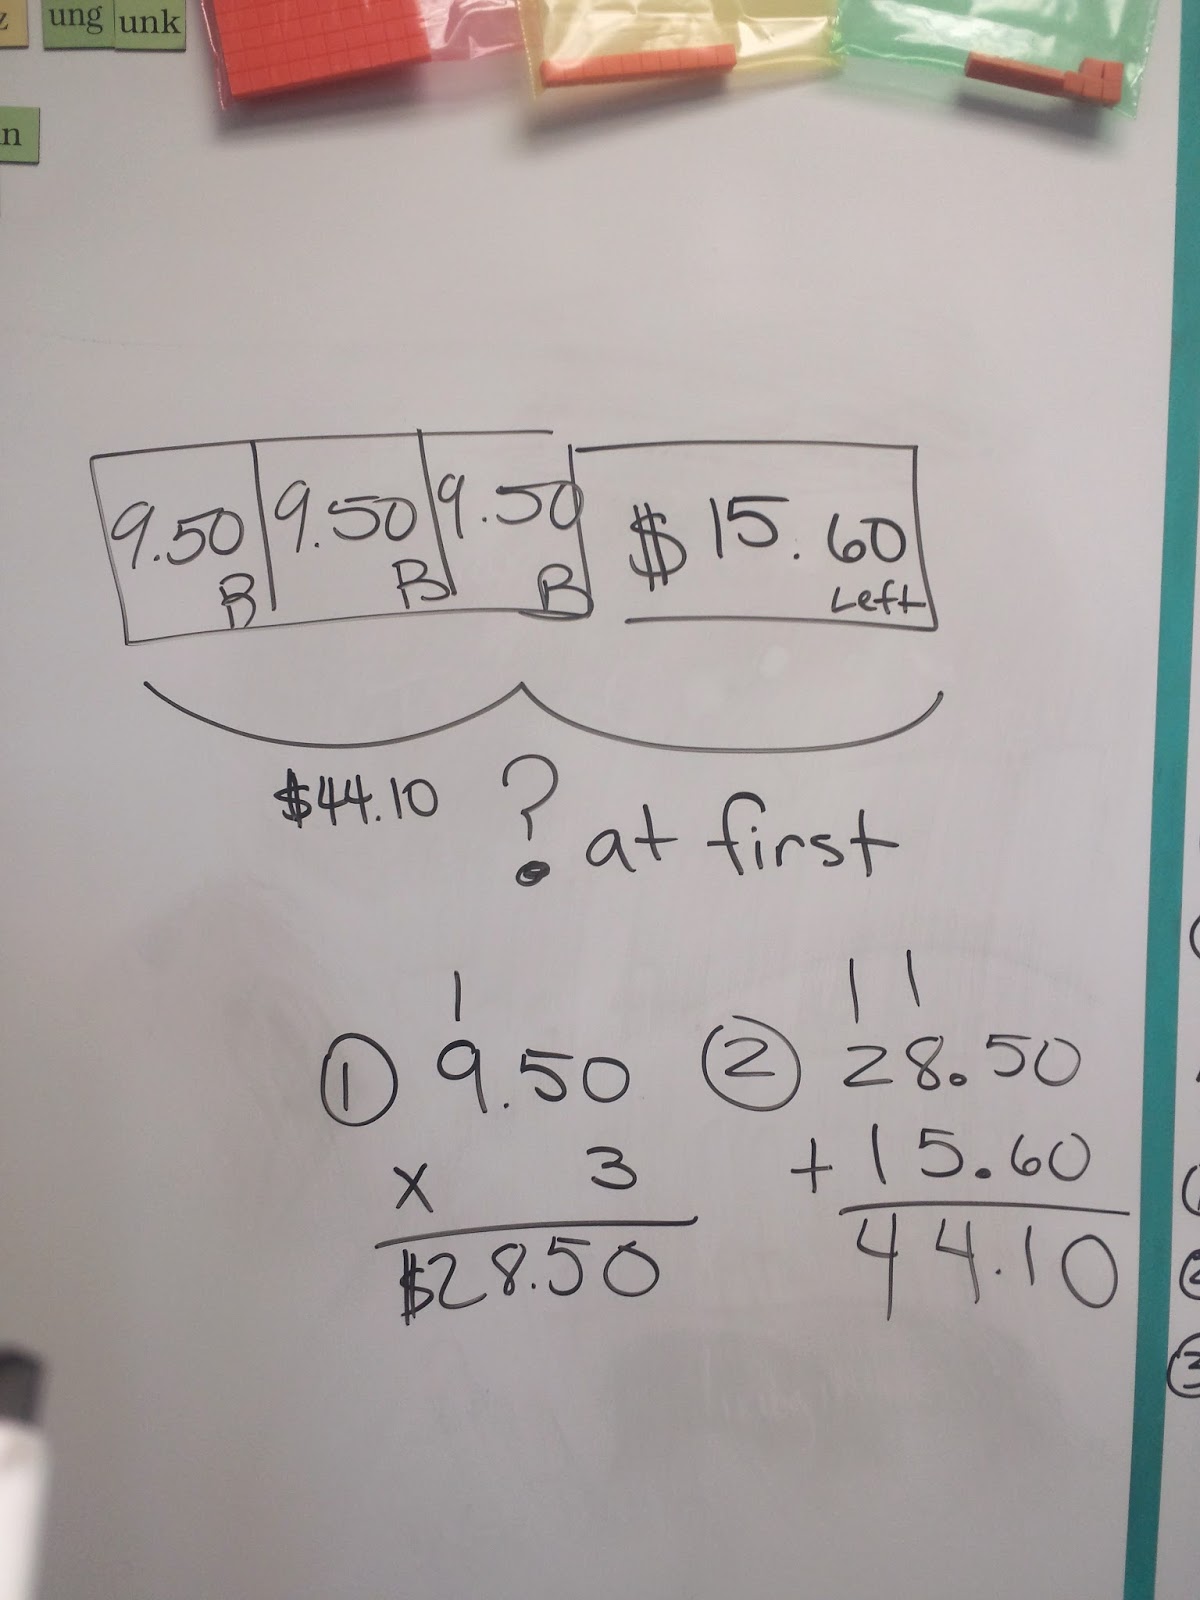 ung unk
n
9.50 9.50 9.50 $15.60
B B B Left
$44.10 ? at first
1
① 9.50
x 3
$28.50
1 1
② 28.50
+ 15.60
44.10